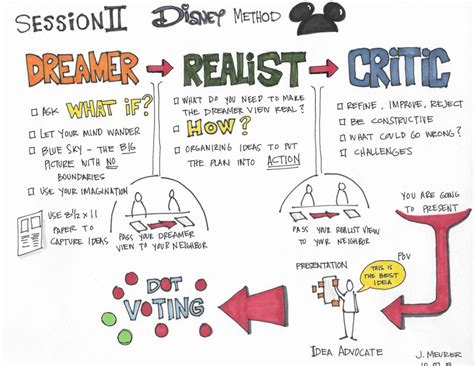 SESSION II DISNEY METHOD
DREAMER → REALIST → CRITIC
ASK WHAT IF?
LET YOUR MIND WANDER
BLUE SKY - THE BIG
PICTURE WITH NO
BOUNDARIES
USE YOUR IMAGINATION
WHAT DO YOU NEED TO MAKE
THE DREAMER VIEW REAL?
HOW?
ORGANIZING IDEAS TO PUT
THE PLAN INTO ACTION
REFINE, IMPROVE, REJECT
BE CONSTRUCTIVE
WHAT COULD GO WRONG?
CHALLENGES
USE 8½ x 11
PAPER TO
CAPTURE IDEAS
PASS YOUR DREAMER
VIEW TO YOUR NEIGHBOR
PASS YOUR REALIST VIEW
TO YOUR NEIGHBOR
YOU ARE GOING
TO PRESENT
DOT
VOTING
PRESENTATION
POV
THIS IS
THE BEST
IDEA
IDEA ADVOCATE
J. MEURER